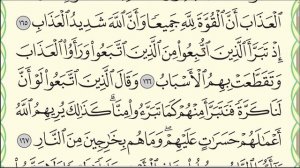 ٱلْعَذَابَ أَنَّ ٱلْقُوَّةَ لِلَّهِ جَمِيعًا وَأَنَّ ٱللَّهَ شَدِيدُ ٱلْعَذَابِ ١٦٥
إِذْ تَبَرَّأَ ٱلَّذِينَ ٱتُّبِعُوا۟ مِنَ ٱلَّذِينَ ٱتَّبَعُوا۟ وَرَأَوُا۟ ٱلْعَذَابَ
وَتَقَطَّعَتْ بِهِمُ ٱلْأَسْبَابُ ١٦٦ وَقَالَ ٱلَّذِينَ ٱتَّبَعُوا۟ لَوْ أَنَّ
لَنَا كَرَّةً فَنَتَبَرَّأَ مِنْهُمْ كَمَا تَبَرَّءُوا۟ مِنَّا ۗ كَذَٰلِكَ يُرِيهِمُ ٱللَّهُ
أَعْمَٰلَهُمْ حَسَرَٰتٍ عَلَيْهِمْ ۖ وَمَا هُم بِخَٰرِجِينَ مِنَ ٱلنَّارِ ١٦٧